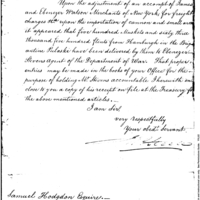 Upon the adjustment of an account of Isaac
and Ebenezer Watson Merchants of New York, for freight
charged upon the importation of cannon and small arms
it appeared that five hundred Muskets and sixty three
thousand five hundred flints from Hamburgh in the Brig-
antine Pulaski have been delivered by them to Ebenezer
Stevens Agent of the Department of War. That proper
entries may be made on the books of your Office for the
purpose of holding Mr Stevens accountable I herewith en-
close to you a copy of his receipt on file at the Treasury for
the above mentioned articles.
I am Sir
very respectfully
Your obedt. Servant.
Samuel Hodgdon Esquire